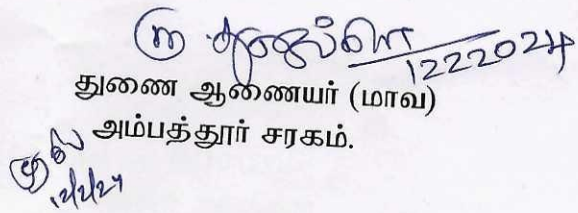 12 2 2024
துணை ஆணையர் (மாவ)
அம்பத்தூர் சரகம்.
12/2/24